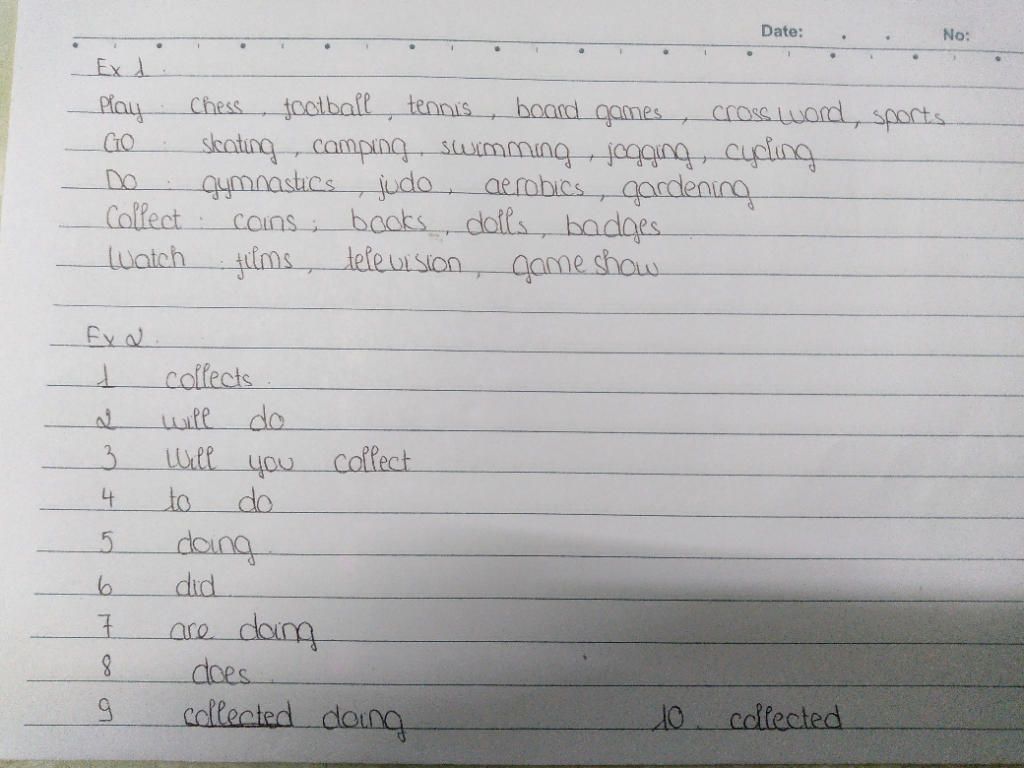 Date: . . No:
Ex 1.
Play : Chess, football, tennis, board games, crossword, sports
Go : skating, camping, swimming, jogging, cycling
Do : gymnastics, judo, aerobics, gardening
Collect : coins; books, dolls, badges
Watch : films, television, gameshow
Ex 2.
1 collects.
2 will do
3 Will you collect
4 to do
5 doing
6 did
7 are doing
8 does
9 collected doing 10. collected